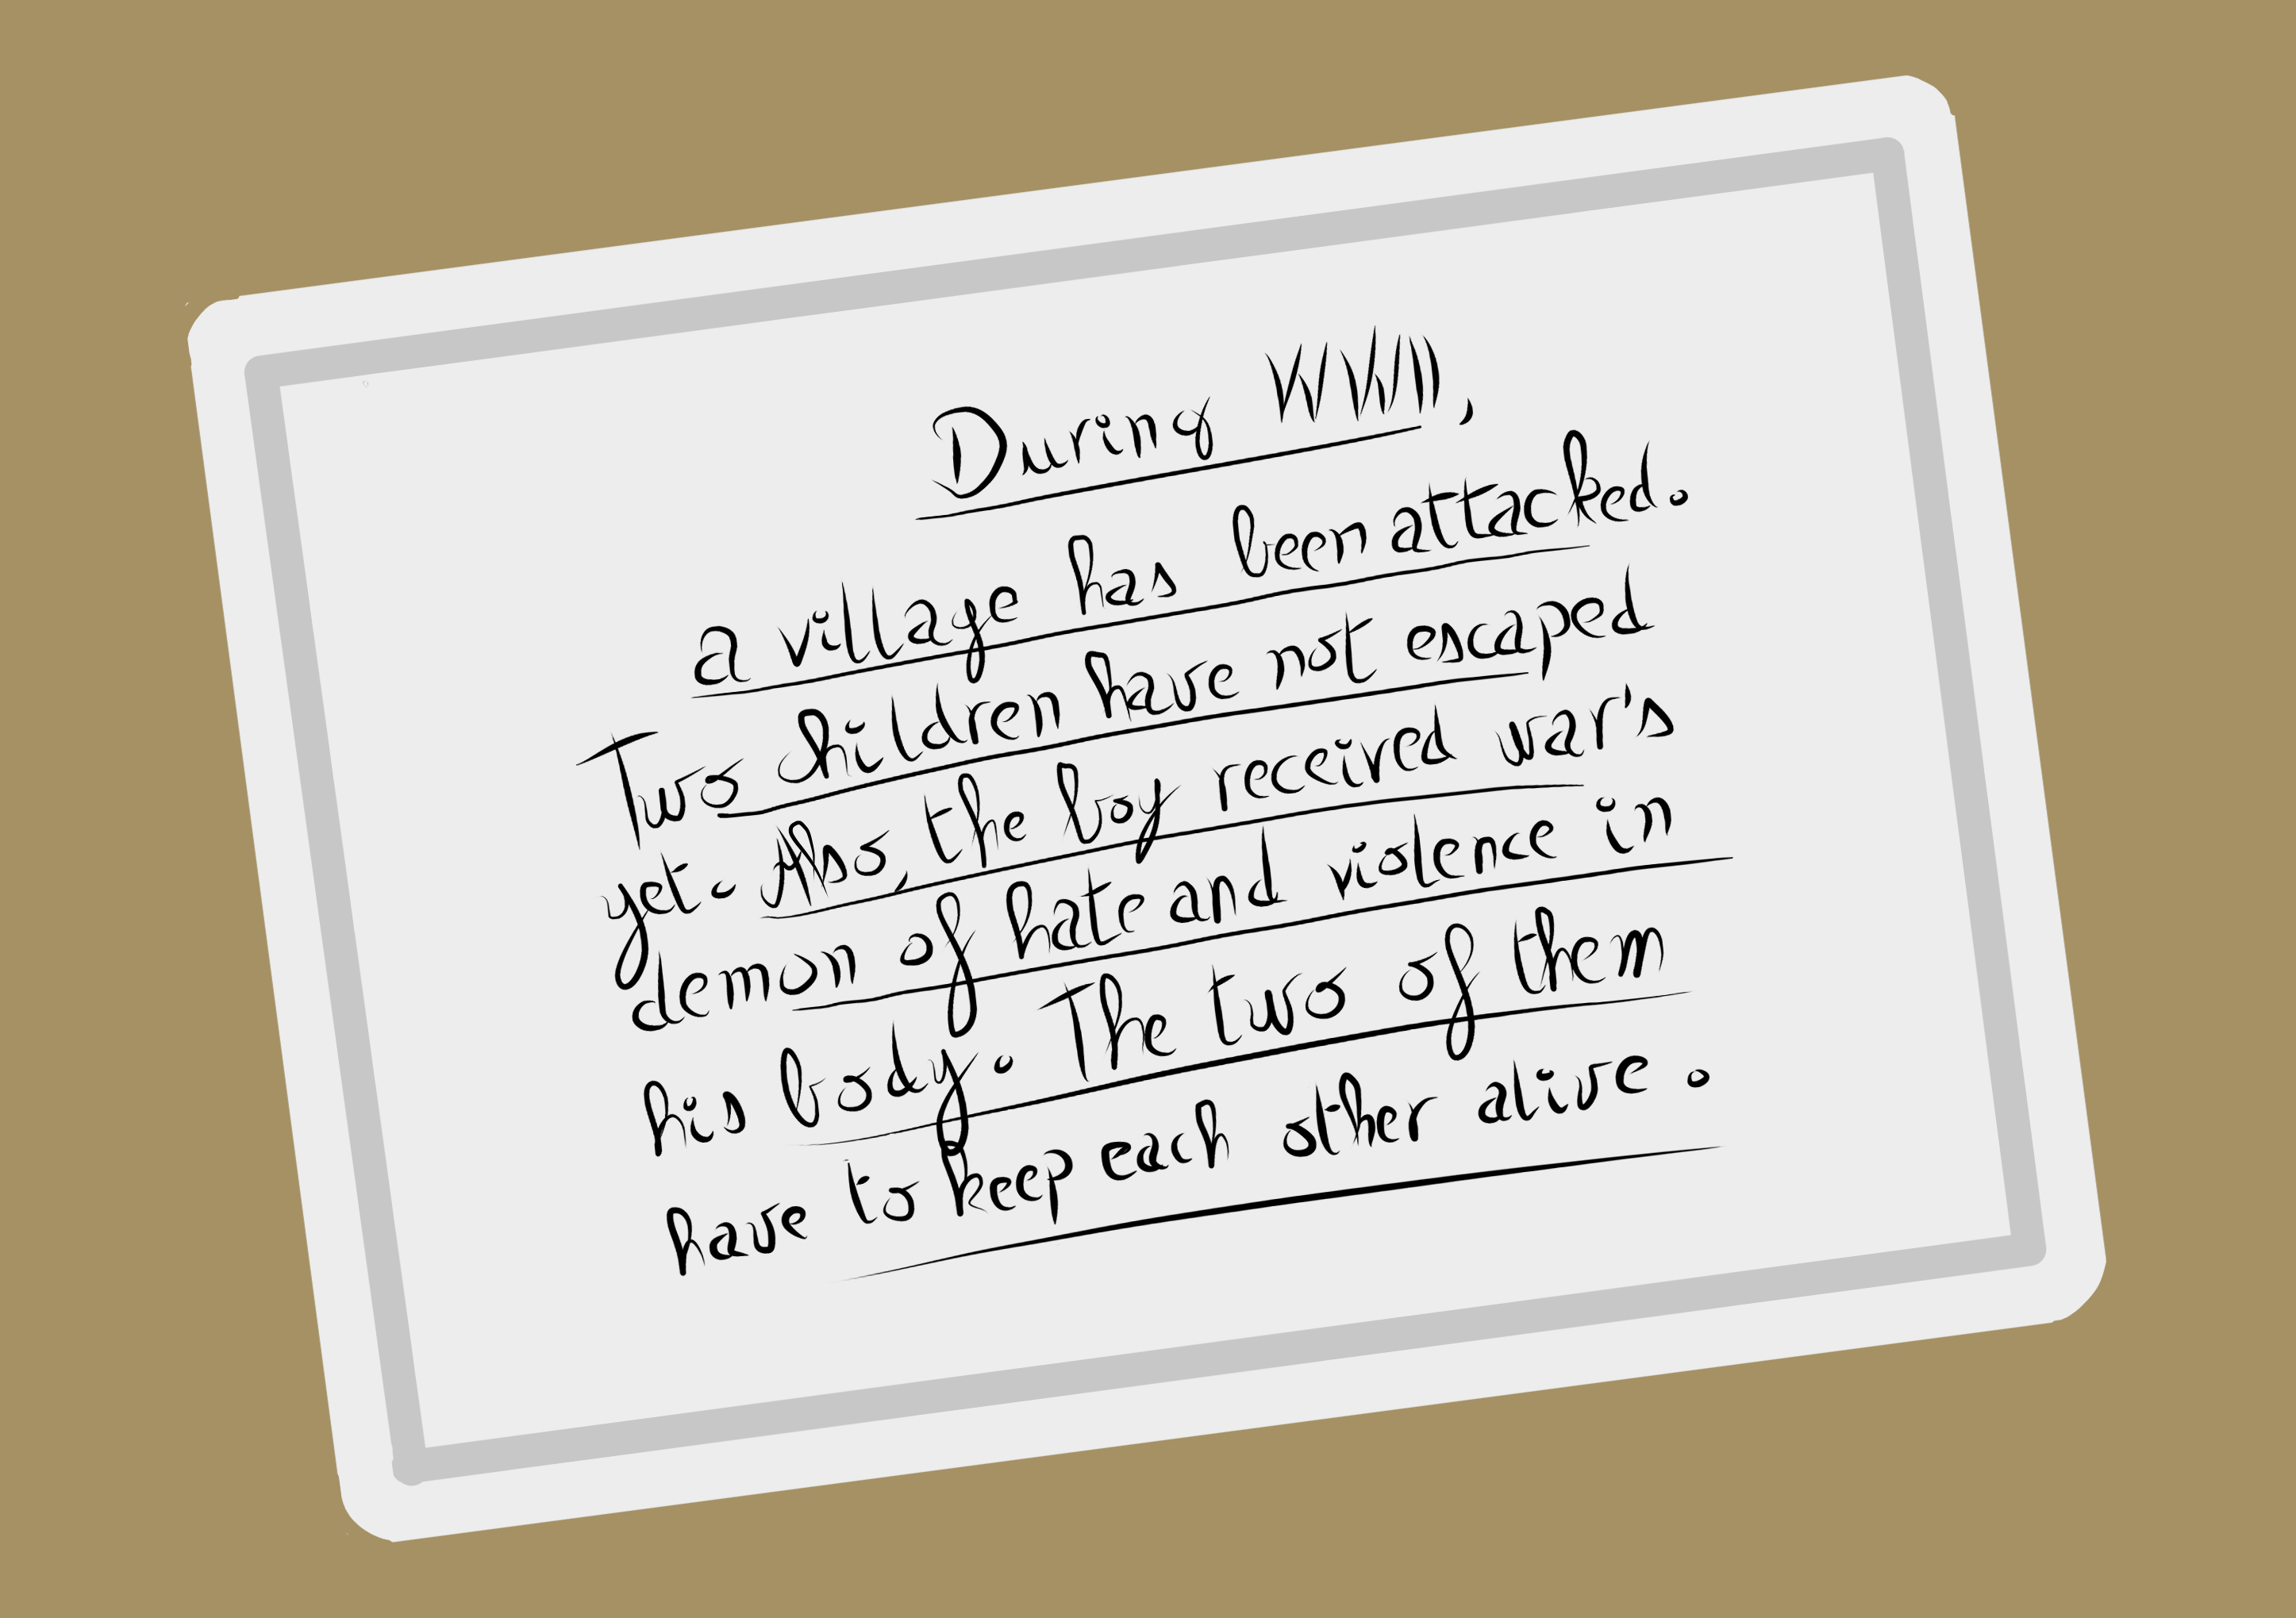 During WWII,
a village has been attacked.
Two children have not escaped
yet. Also, the boy received war's
demon of hate and violence in
his body. The two of them
have to keep each other alive.